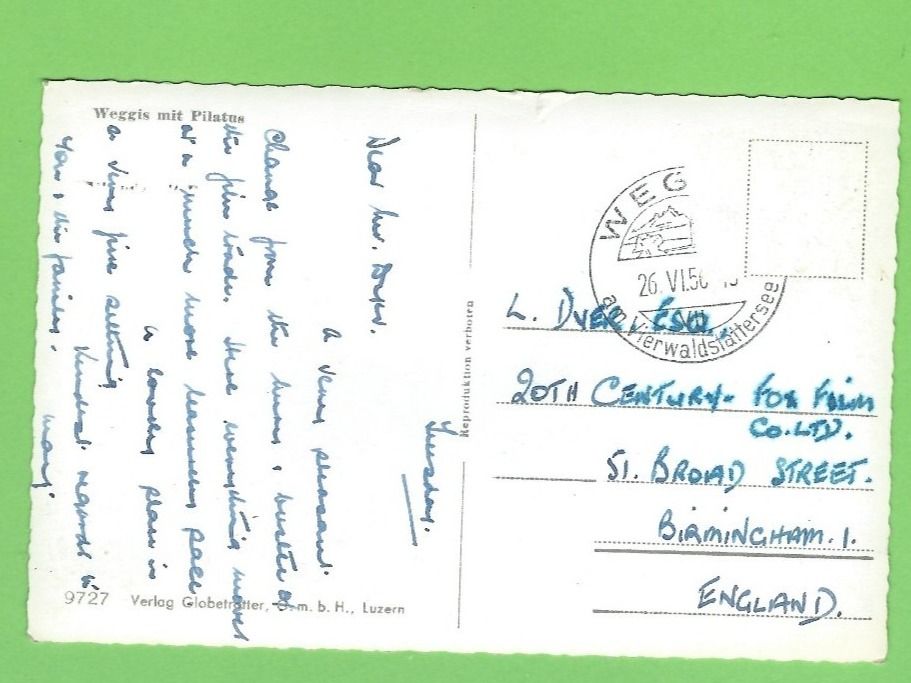 Weggis mit Pilatus
Tuesday.
Dear Mr. Dyer,
A very pleasant
change from the hum & bustle of
the film trade. Here everything moves
at a much more leisurely pace
in a lovely place in
a very fine setting
Kindest regards to
you & the family.
9727 Verlag Globetrotter, G.m.b.H., Luzern
Reproduktion verboten
WEG
26.VI.56
am Vierwaldstättersee
L. DYER, ESQ.,
20TH CENTURY-FOX FILM
CO. LTD.
51. BROAD STREET.
BIRMINGHAM. 1.
ENGLAND.